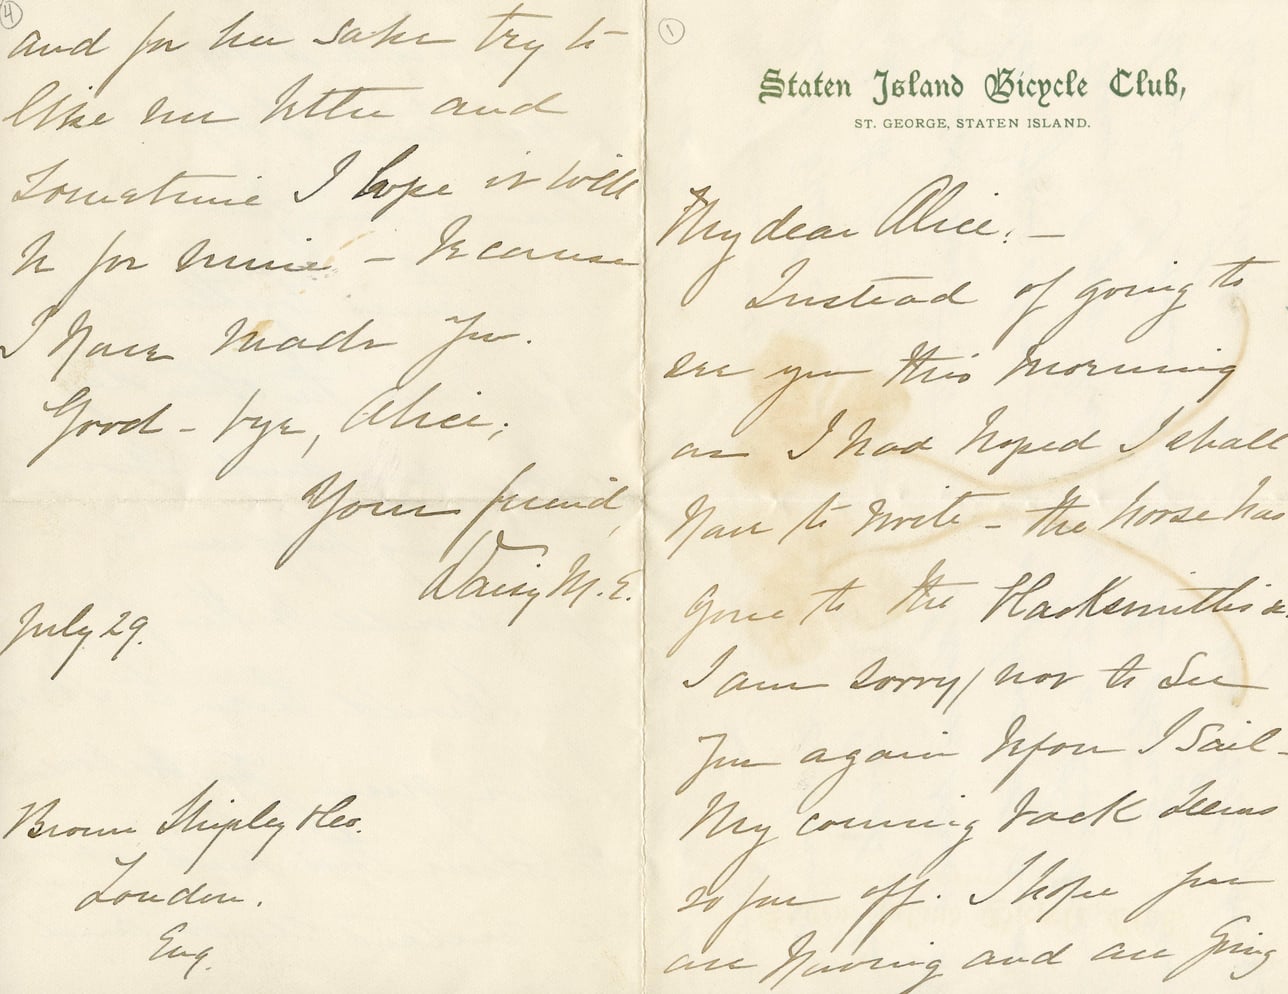 4
and for her sake try to
like me better and
sometime I hope it will
be for mine – because
I have made you.
Good-bye, Alice,
Your friend,
Daisy M. E.
July 29.
Brown Shipley & Co.
London.
Eng.
1
Staten Island Bicycle Club,
ST. GEORGE, STATEN ISLAND.
My dear Alice, –
Instead of going to
see you this morning
as I had hoped I shall
have to write – the horse has
gone to the blacksmith's &
I am sorry not to see
you again before I sail –
My coming back seems
so far off. I hope you
are and are going